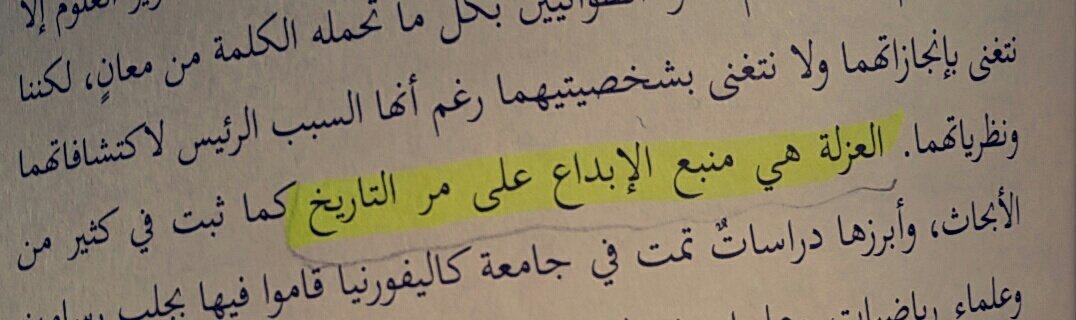 بكل ما تحمله الكلمة من معانٍ، لكننا
نتغنى بإنجازاتهما ولا نتغنى بشخصيتيهما رغم أنها السبب الرئيس لاكتشافاتهما
ونظرياتهما. العزلة هي منبع الإبداع على مر التاريخ كما ثبت في كثير من
الأبحاث، وأبرزها دراساتٌ تمت في جامعة كاليفورنيا قاموا فيها بجلب
وعلماء